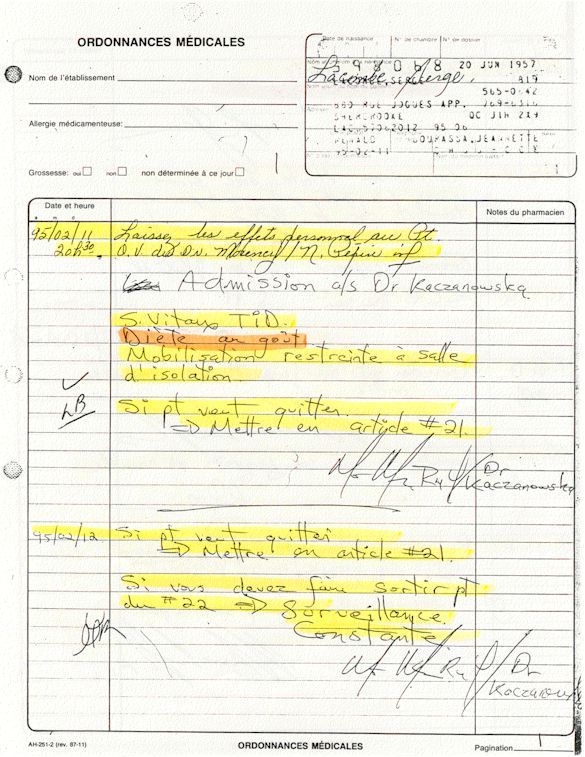 ORDONNANCES MÉDICALES
Date de naissance N° de chambre N° de dossier
98068 20 JUN 1957
Nom de l'établissement
Lacombe, Serge
819
565-0642
680 RUE JOGUES APP.
SHERBROOKE QC J1H 2X9
Allergie médicamenteuse:
BOURASSA, JEANNETTE
95-02-11
Grossesse: oui non non déterminée à ce jour
Date et heure Notes du pharmacien
95/02/11 Laissez les effets personnel au Pt.
20h30. O.V. du Dr. Morency / N. Pépin inf
Admission a/s Dr Kaczanowska
S. Vitaux TID.
Diète au goût
Mobilisation restreinte à salle
d'isolation.
LB
Si pt veut quitter.
⇒ Mettre en article #21.
Dr
Kaczanowska
95/02/12 Si pt veut quitter
⇒ Mettre en article #21.
Si vous devez faire sortir pt
du #22 ⇒ Surveillance
Constante
Dr
Kaczanow
AH-251-2 (rev. 87-11) ORDONNANCES MÉDICALES Pagination